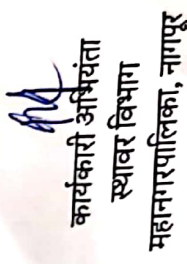 कार्यकारी अभियंता
स्थावर विभाग
महानगरपालिका, नागपूर